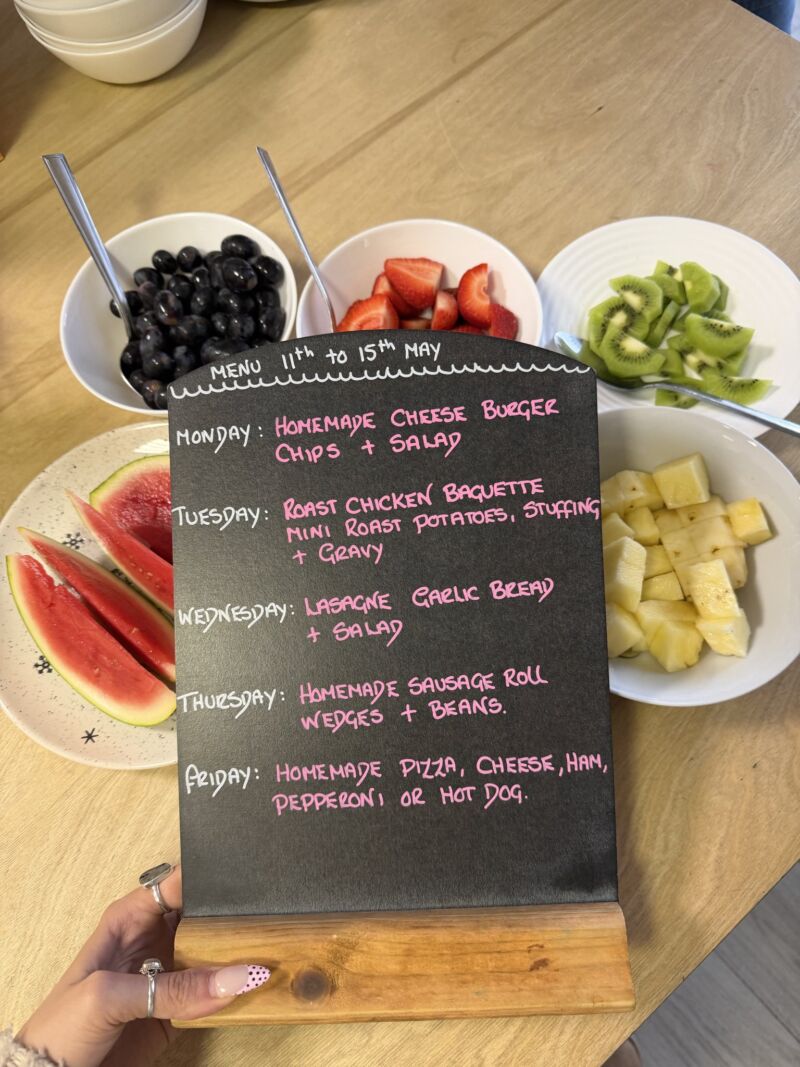 MENU 11th to 15th MAY
MONDAY: HOMEMADE CHEESE BURGER
CHIPS + SALAD
TUESDAY: ROAST CHICKEN BAGUETTE
MINI ROAST POTATOES, STUFFING
+ GRAVY
WEDNESDAY: LASAGNE GARLIC BREAD
+ SALAD
THURSDAY: HOMEMADE SAUSAGE ROLL
WEDGES + BEANS.
FRIDAY: HOMEMADE PIZZA, CHEESE, HAM,
PEPPERONI OR HOT DOG.